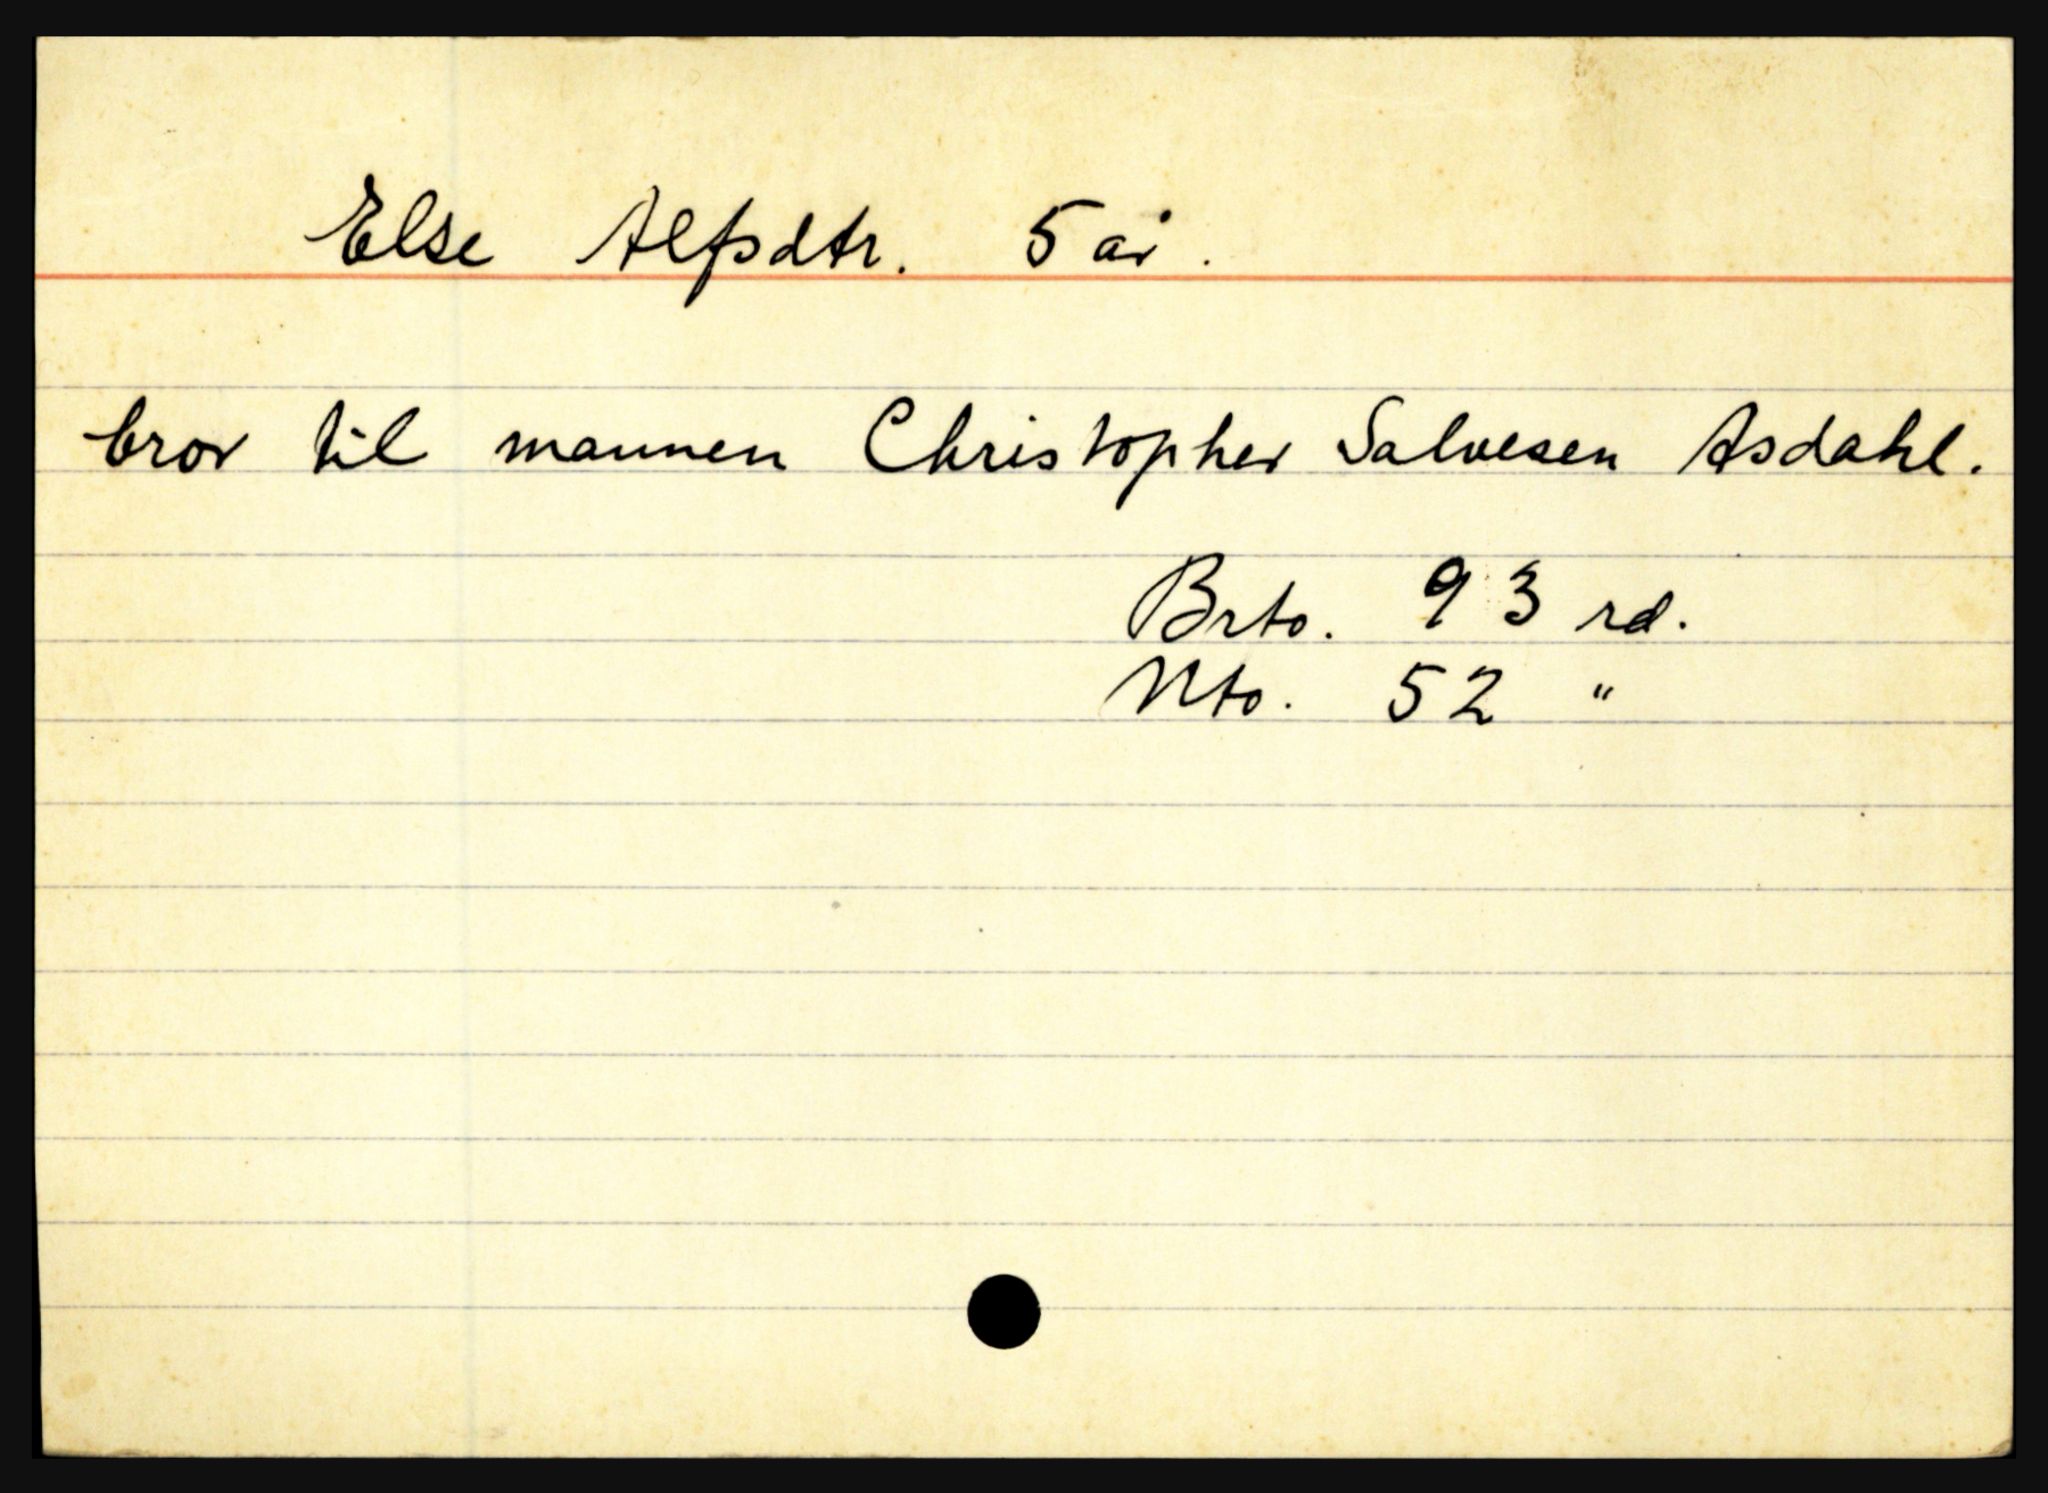 Else Alfsdtr. 5 år.
bror til mannen Christopher Salvesen Asdahl.
Brto. 93 rd.
Nto. 52 "